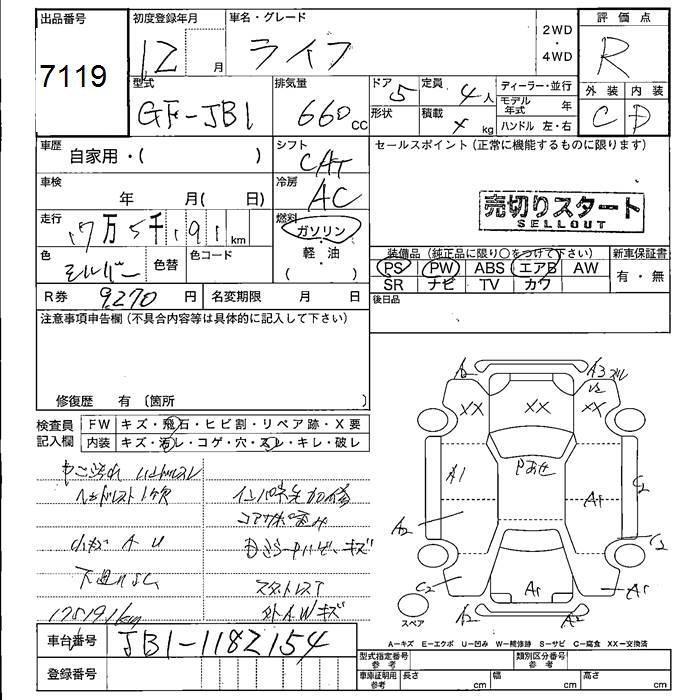 出品番号
7119
初度登録年月
12 月
車名・グレード
ライフ
2WD
・
4WD
評価点
R
外装 内装
C D
型式
GF-JB1
排気量
660 cc
ドア 5
定員 4 人
形状
積載 × kg
ディーラー・並行
モデル年式 年
ハンドル 左・右
車歴
自家用・( )
シフト
CAT
セールスポイント (正常に機能するものに限ります)
車検
年 月( 日)
冷房
AC
売切りスタート
SELLOUT
走行
17万5千191 km
燃料
ガソリン
( 軽・油 )
色
シルバー
色替
色コード
装備品 (純正品に限り○をつけて下さい)
PS PW ABS エアB AW
SR ナビ TV カワ
新車保証書
有・無
R券 9,270 円
名変期限 月 日
後日品
注意事項申告欄 (不具合内容等は具体的に記入して下さい)
修復歴 有 〔箇所 〕
検査員
記入欄
FW キズ・飛石・ヒビ割・リペア跡・X要
内装 キズ・汚レ・コゲ・穴・スレ・キレ・破レ
ヘッドレスト1ケ欠
小キズ A U
下廻りSC
175191km
コアサポ歪み
スタットレスT
外AWキズ
A3
XX XX XX
A1
A2
C2
A2
A1
A1
C2
C2
A1
A2
スペア
A-キズ E-エクボ U-凹み W-補修跡 S-サビ C-腐食 XX-交換済
車台番号 JB1-1182154
登録番号
型式指定番号 参考
類別区分番号 参考
車庫証明用 参考
長さ cm
幅 cm
高さ cm